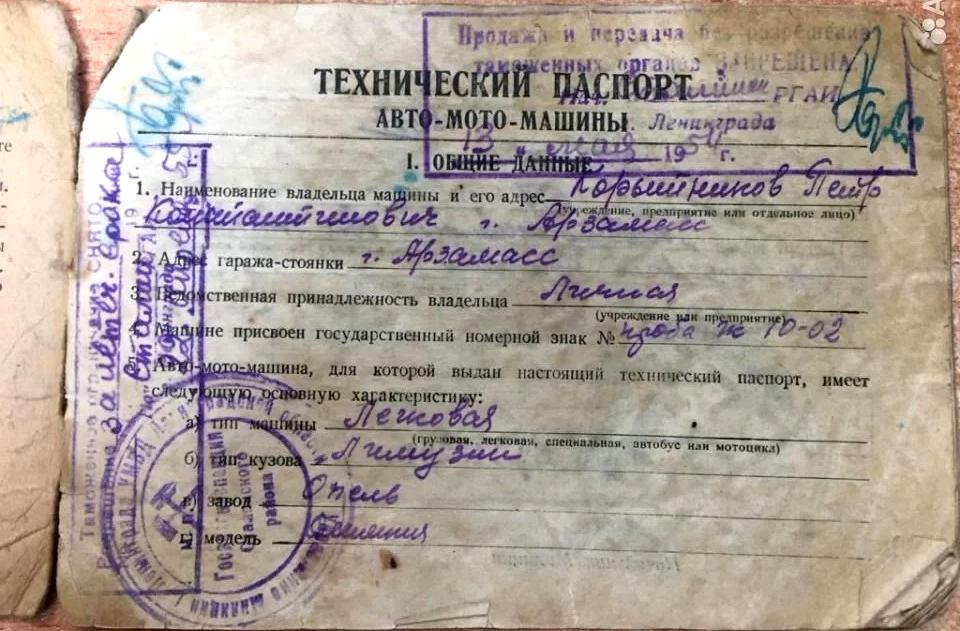 Продажа и передача без разрешения
таможенных органов ЗАПРЕЩЕНА
РГАИ
ТЕХНИЧЕСКИЙ ПАСПОРТ
АВТО-МОТО-МАШИНЫ
г. Ленинграда
13 мая 1954 г.
I. ОБЩИЕ ДАННЫЕ
1. Наименование владельца машины и его адрес Петр
(учреждение, предприятие или отдельное лицо)
г. Арзамасс
2. Адрес гаража-стоянки г. Арзамасс
3. Ведомственная принадлежность владельца Личная
(учреждение или предприятие)
4. Машине присвоен государственный номерной знак № проба Ж 10-02
Авто-мото-машина, для которой выдан настоящий технический паспорт, имеет
следующую основную характеристику:
а) тип машины Легковая
(грузовая, легковая, специальная, автобус или мотоцикл)
б) тип кузова Лимузин
в) завод Опель
г) модель
Таможенное ограничение снято
Госавтоинспекция
района